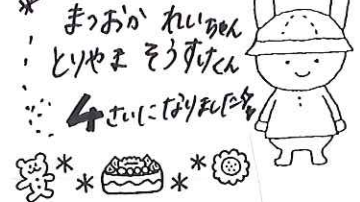 まつおか れいちゃん
とりやま そうすけくん
4さいになりました